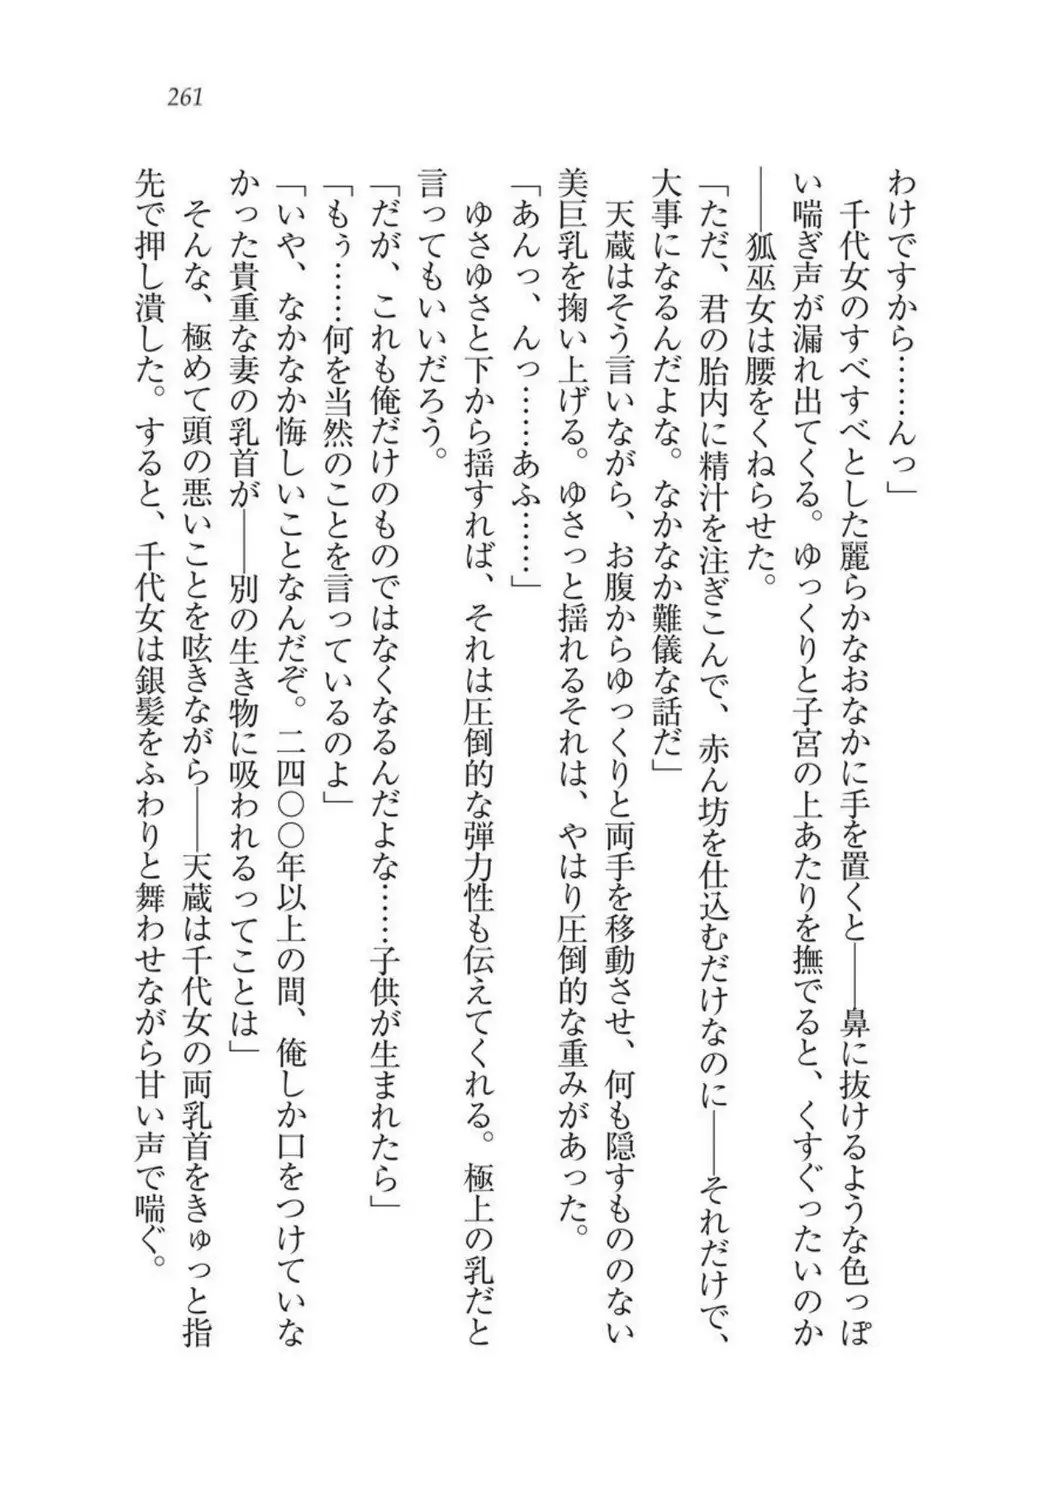 261
わけですから……んっ」
　千代女のすべすべとした麗らかなおなかに手を置くと――鼻に抜けるような色っぽ
い喘ぎ声が漏れ出てくる。ゆっくりと子宮の上あたりを撫でると、くすぐったいのか
――狐巫女は腰をくねらせた。
「ただ、君の胎内に精汁を注ぎこんで、赤ん坊を仕込むだけなのに――それだけで、
大事になるんだよな。なかなか難儀な話だ」
　天蔵はそう言いながら、お腹からゆっくりと両手を移動させ、何も隠すもののない
美巨乳を掬い上げる。ゆさっと揺れるそれは、やはり圧倒的な重みがあった。
「あんっ、んっ……あふ……」
　ゆさゆさと下から揺すれば、それは圧倒的な弾力性も伝えてくれる。極上の乳だと
言ってもいいだろう。
「だが、これも俺だけのものではなくなるんだよな……子供が生まれたら」
「もぅ……何を当然のことを言っているのよ」
「いや、なかなか悔しいことなんだぞ。二四〇〇年以上の間、俺しか口をつけていな
かった貴重な妻の乳首が――別の生き物に吸われるってことは」
　そんな、極めて頭の悪いことを呟きながら――天蔵は千代女の両乳首をきゅっと指
先で押し潰した。すると、千代女は銀髪をふわりと舞わせながら甘い声で喘ぐ。